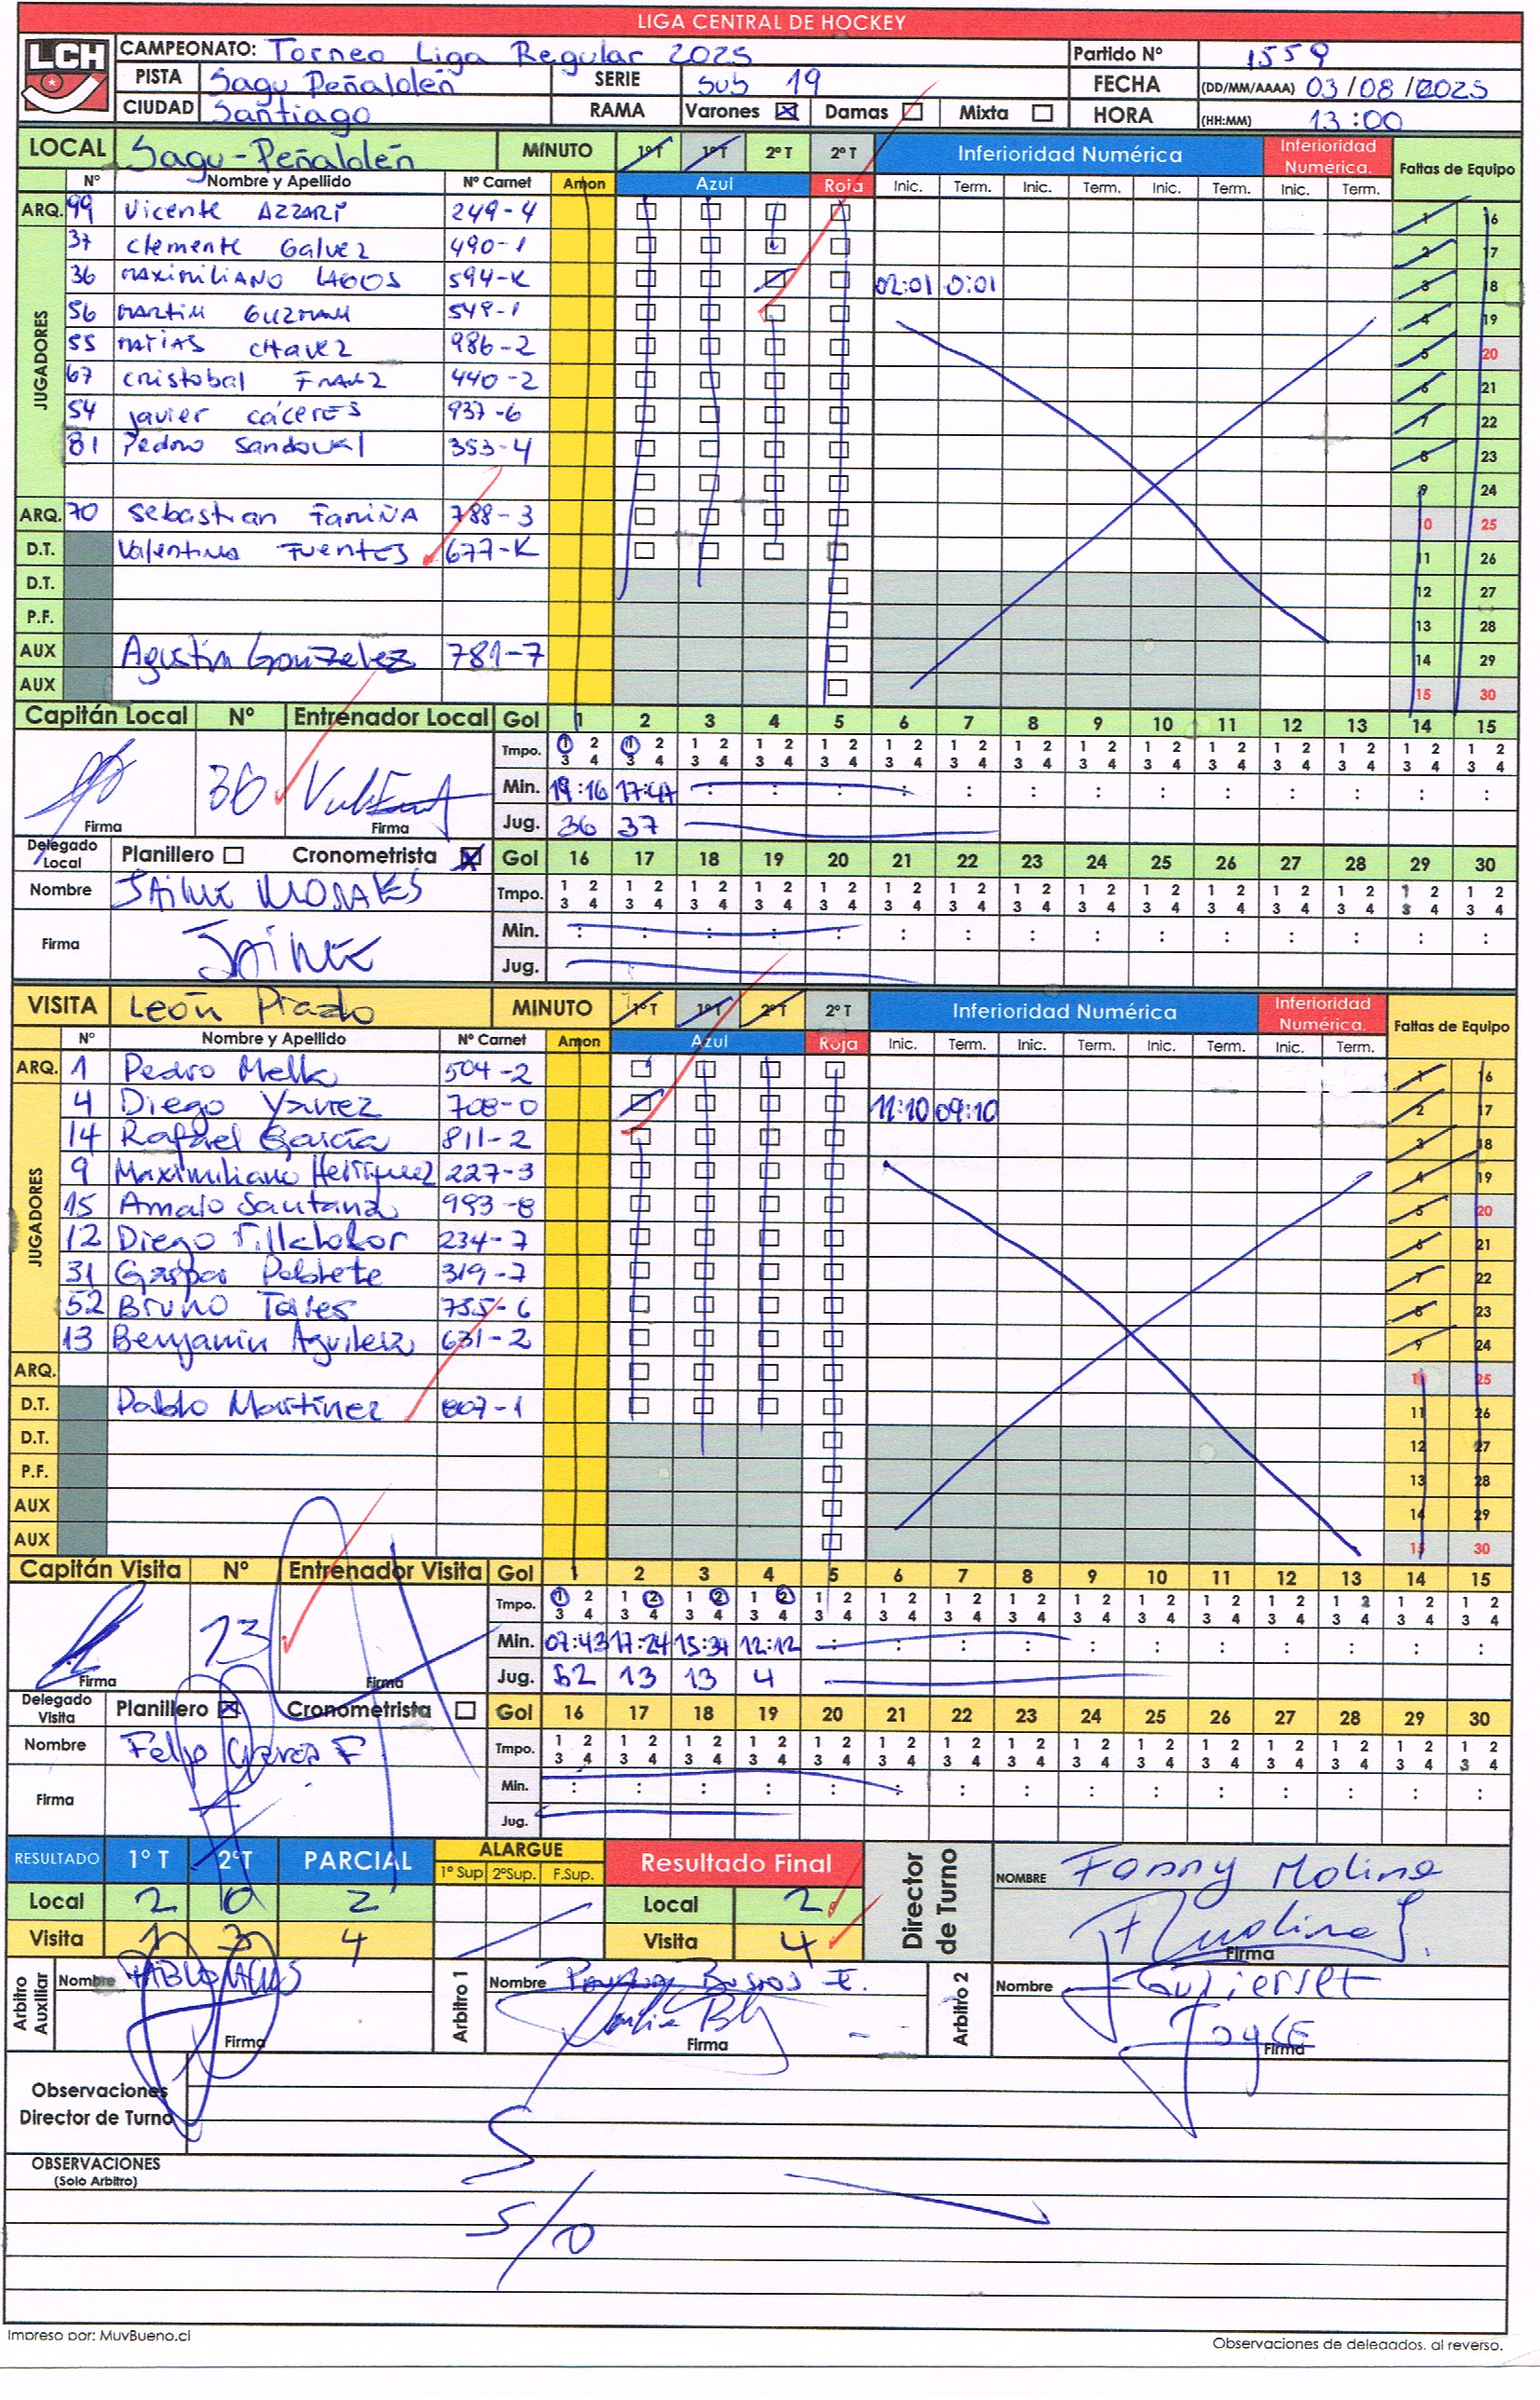 LIGA CENTRAL DE HOCKEY
LCH
CAMPEONATO: Torneo Liga Regular 2025 Partido Nº 1559
PISTA Sagu Peñalolén SERIE Sub 19 FECHA (DD/MM/AAAA) 03/08/2025
CIUDAD Santiago RAMA Varones Damas Mixta HORA (HH:MM) 13:00
LOCAL Sagu-Peñalolén MINUTO 1º T 1º T 2º T 2º T Inferioridad Numérica Inferioridad Numérica. Faltas de Equipo
Nº Nombre y Apellido Nº Carnet Amon Azul Roja Inic. Term. Inic. Term. Inic. Term. Inic. Term.
ARQ. 99 Vicente AZZARI 249-4 1 16
JUGADORES
37 Clemente Galvez 490-1 2 17
36 MAXIMILIANO LAGOS 594-K 02:01 0:01 3 18
56 MARTIN GUZMAN 549-1 4 19
55 MATIAS CHAVEZ 986-2 5 20
67 Cristobal 440-2 6 21
54 Javier CÁCERES 937-6 7 22
81 Pedro Sandoval 353-4 8 23
9 24
ARQ. 70 Sebastian FARIÑA 788-3 10 25
D.T. Valentina FUENTES 677-K 11 26
D.T. 12 27
P.F. 13 28
AUX Agustin Gonzalez 781-7 14 29
AUX 15 30
Capitán Local Nº Entrenador Local Gol 1 2 3 4 5 6 7 8 9 10 11 12 13 14 15
Tmpo. 1 2 3 4 1 2 3 4 1 2 3 4 1 2 3 4 1 2 3 4 1 2 3 4 1 2 3 4 1 2 3 4 1 2 3 4 1 2 3 4 1 2 3 4 1 2 3 4 1 2 3 4 1 2 3 4 1 2 3 4
36 Min. 19:16
Firma Firma Jug. 36 37
Delegado Local Planillero Cronometrista Gol 16 17 18 19 20 21 22 23 24 25 26 27 28 29 30
Nombre JAIME MORALES Tmpo. 1 2 3 4 1 2 3 4 1 2 3 4 1 2 3 4 1 2 3 4 1 2 3 4 1 2 3 4 1 2 3 4 1 2 3 4 1 2 3 4 1 2 3 4 1 2 3 4 1 2 3 4 1 2 3 4 1 2 3 4
Firma JAIME Min.
Jug.
VISITA León Prado MINUTO 1º T 1º T 2º T 2º T Inferioridad Numérica Inferioridad Numérica. Faltas de Equipo
Nº Nombre y Apellido Nº Carnet Amon Azul Roja Inic. Term. Inic. Term. Inic. Term. Inic. Term.
ARQ. 1 Pedro Mella 504-2 1 16
JUGADORES
4 Diego Yavez 708-0 11:10 09:10 2 17
14 Rafael García 811-2 3 18
9 Maximiliano Henriquez 227-3 4 19
15 Amalo Santana 993-8 5 20
12 Diego 234-7 6 21
31 Gaspar Poblete 319-7 7 22
52 Bruno 755-6 8 23
13 Benjamin Aguilera 631-2 9 24
ARQ. 10 25
D.T. Pablo Martinez 807-1 11 26
D.T. 12 27
P.F. 13 28
AUX 14 29
AUX 15 30
Capitán Visita Nº Entrenador Visita Gol 1 2 3 4 5 6 7 8 9 10 11 12 13 14 15
Tmpo. 1 2 3 4 1 2 3 4 1 2 3 4 1 2 3 4 1 2 3 4 1 2 3 4 1 2 3 4 1 2 3 4 1 2 3 4 1 2 3 4 1 2 3 4 1 2 3 4 1 2 3 4 1 2 3 4 1 2 3 4
13 Min. 07:43 17:24 15:34 12:12
Firma Firma Jug. 52 13 13 4
Delegado Visita Planillero Cronometrista Gol 16 17 18 19 20 21 22 23 24 25 26 27 28 29 30
Nombre Tmpo. 1 2 3 4 1 2 3 4 1 2 3 4 1 2 3 4 1 2 3 4 1 2 3 4 1 2 3 4 1 2 3 4 1 2 3 4 1 2 3 4 1 2 3 4 1 2 3 4 1 2 3 4 1 2 3 4 1 2 3 4
Firma Min.
Jug.
RESULTADO 1º T 2ºT PARCIAL ALARGUE Resultado Final Director de Turno NOMBRE Fanny Molina
1º Sup 2ºSup. F.Sup.
Local 2 0 2 Local 2
Visita 1 3 4 Visita 4 Firma
Arbitro Auxiliar Nombre PABLO Arbitro 1 Nombre Bustos E. Arbitro 2 Nombre
Firma Firma JOYCE Firma
Observaciones Director de Turno
OBSERVACIONES
(Solo Arbitro)
S/O
Impreso por: MuvBueno.cl Observaciones de delegados. al reverso.